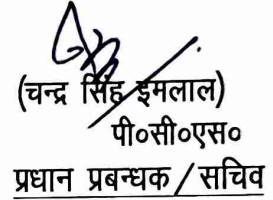 (चन्द्र सिंह इमलाल)
पी०सी०एस०
प्रधान प्रबन्धक / सचिव